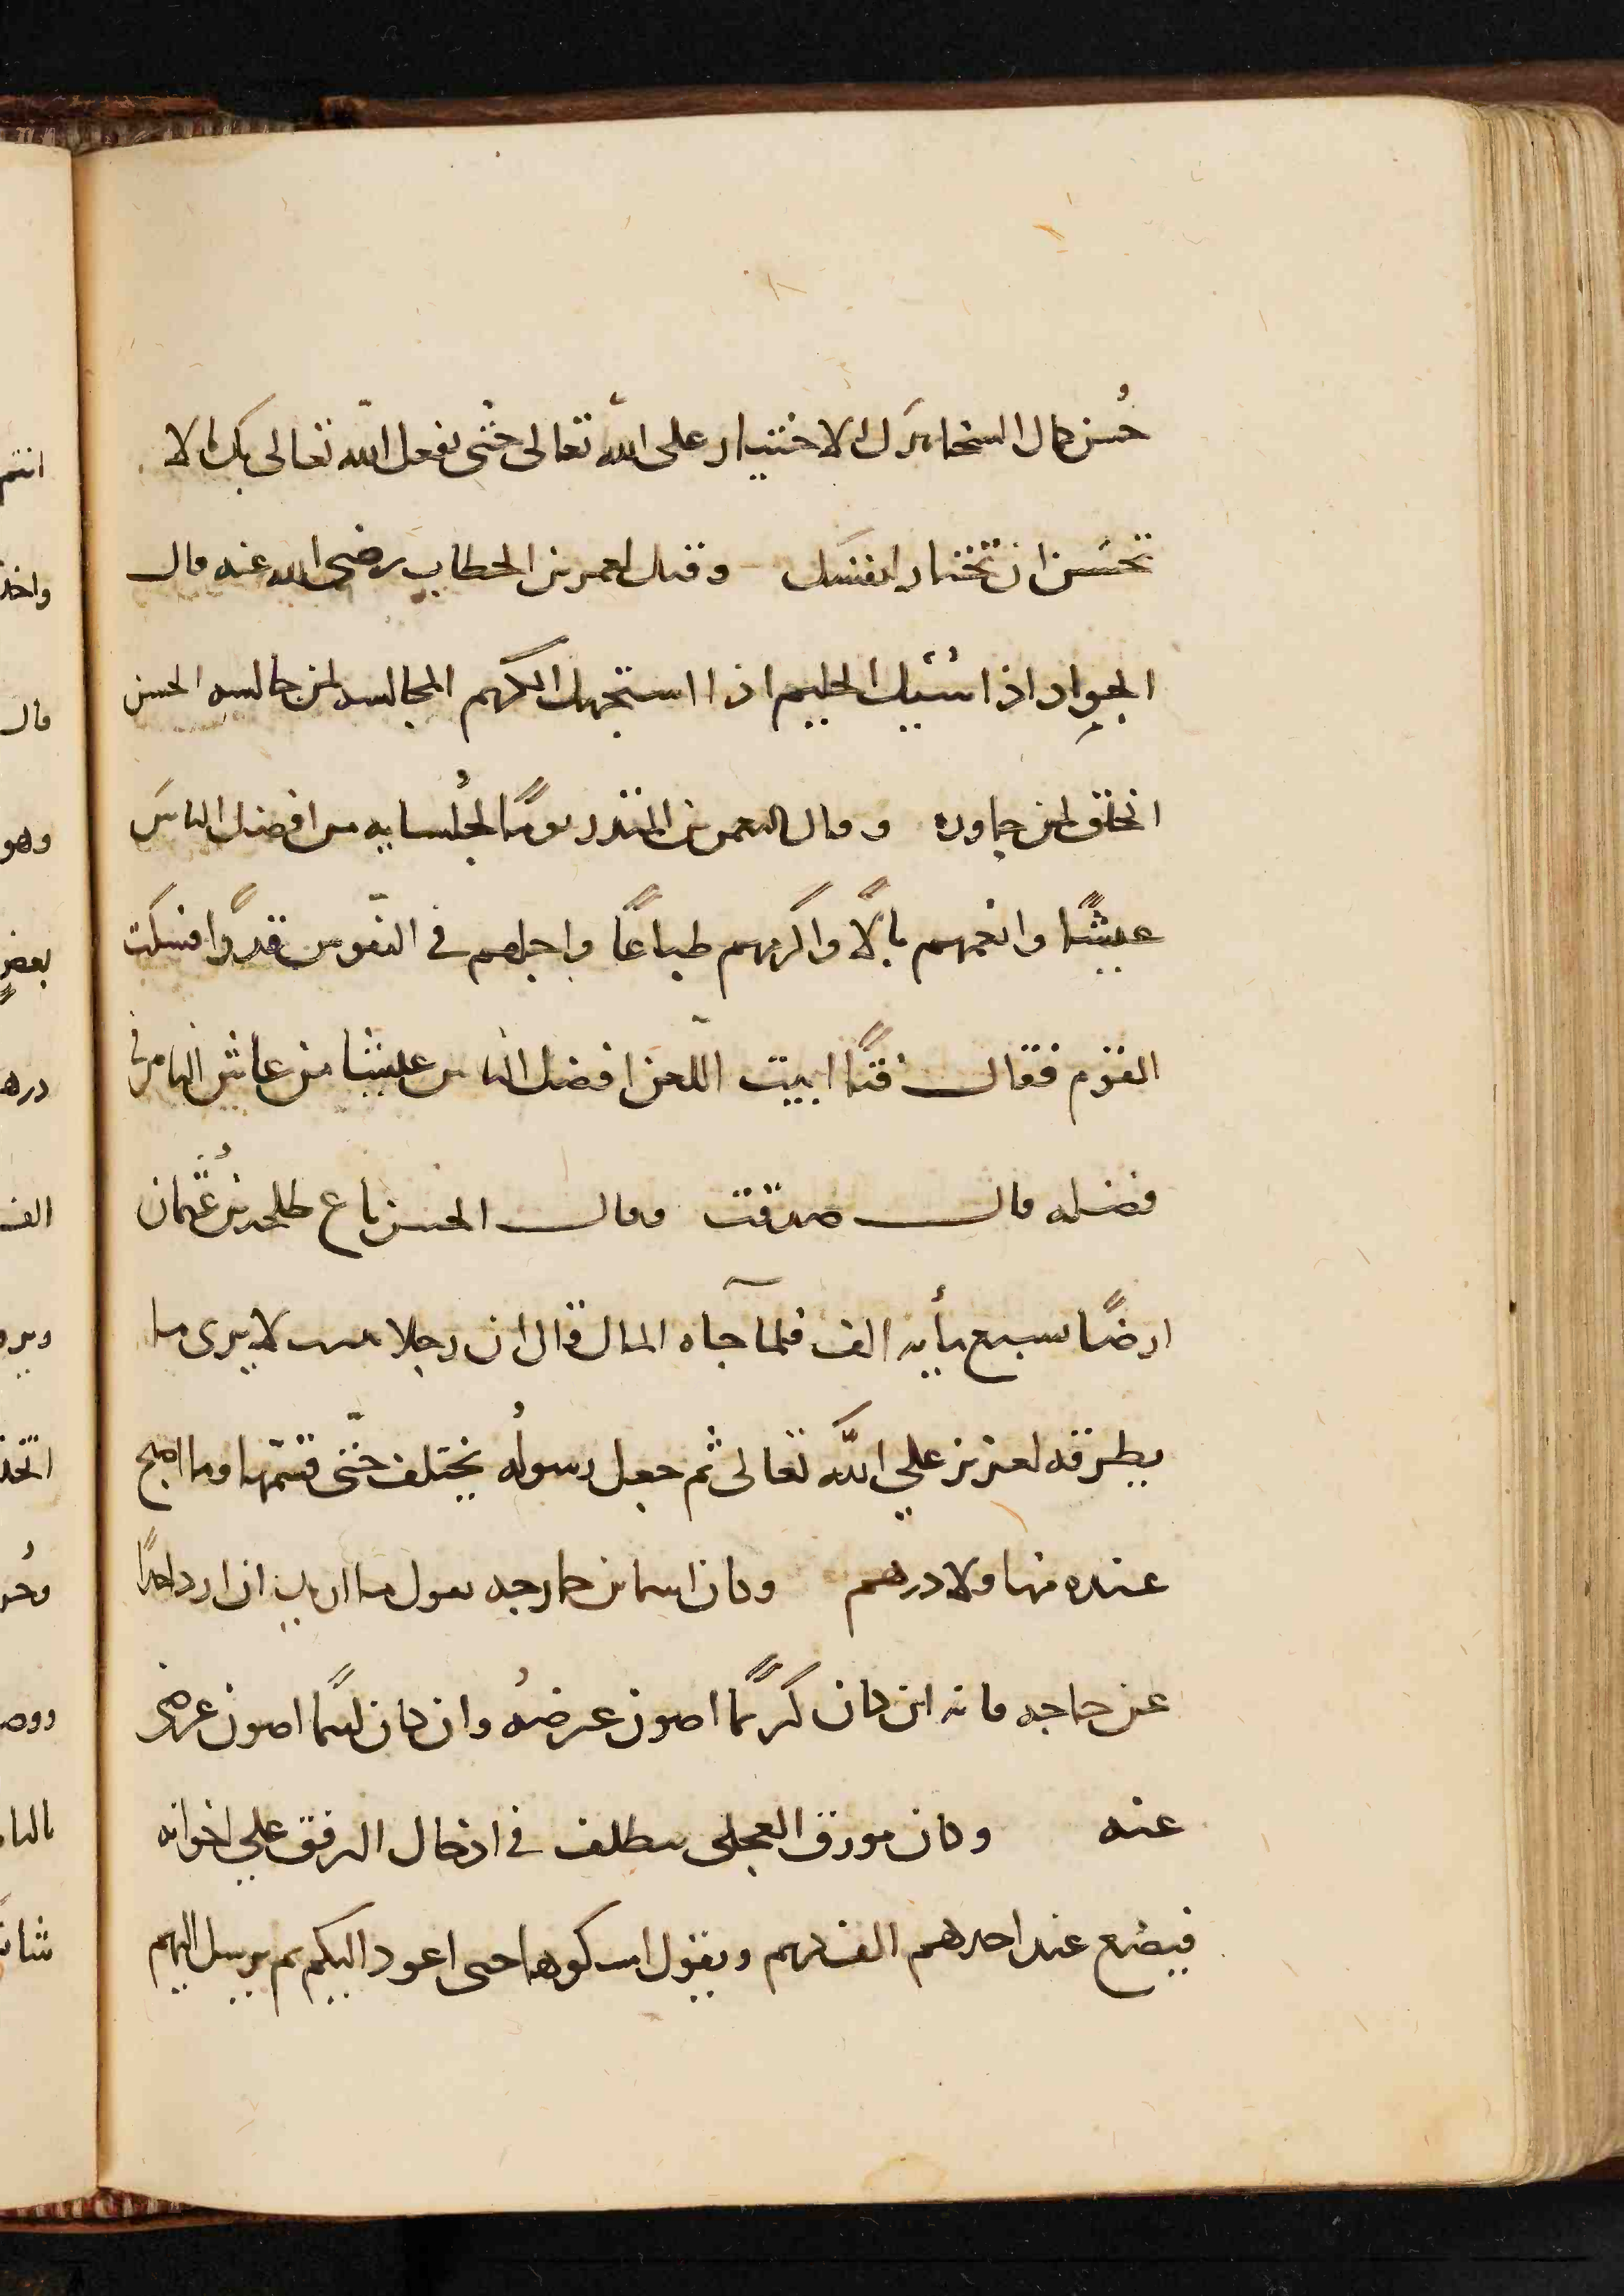 حُسن كمال السخا ترك الاختيار على الله تعالى حتى يفعل الله تعالى بك الا
تحسن ان تختار لنفسك وقيل لعمر بن الخطاب رضى الله عنه قال
الجواد اذا سُئيل الحليم اذا استجهل الكريم المجالسه لمن جالسه الحسن
الخلق لمن جاوره وقال النعمن بن المنذر يومًا لجُلسايه من افضل الناس
عيشًا وانعمهم بالًا واكرمهم طباعًا واجلهم في النفوس قدرًا فسكت
القوم فقال فتًا ابيت اللعن افضل الناس عيشا من عاش الناس في
فضله قال صدقت وقال الحسن باع طلحه بن عُثمان
ارضًا بسبع مأيه الف فلمآ جاه المال قال ان رجلا يبيت لا يرى ما
يطرقه لعزيز علي الله تعالى ثم جعل رسولُه يختلف حتّى قسمها وما اصبح
عنده منها ولا درهم وكان اسما بن خارجه يقول ما اريد ان ارد احدًا
عن حاجه فانه ان كان كريمًا اصون عرضهُ وان كان ليمًا اصون عرضى
عنه وكان مورق العجلى يتطلف في ادخال الرفق علي اخوانه
فيضع عند احدهم الف درهم ويقول امسكوها حتى اعود اليكم ثم يرسل اليهم